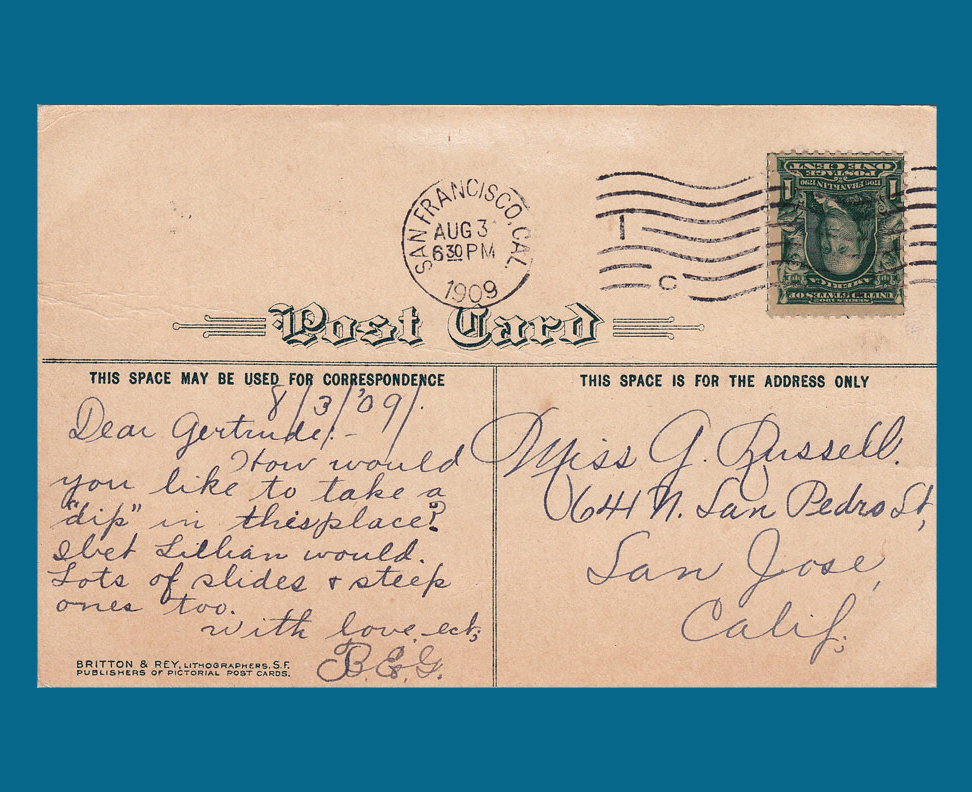 SAN FRANCISCO, CAL.
AUG 3
6 30 PM
1909
C
ONE CENT
POSTAGE
1706 FRANKLIN 1790
1 1
AMERICA
UNITED STATES OF
SERIES 1902
Post Card
THIS SPACE MAY BE USED FOR CORRESPONDENCE
8/3/'09/.
Dear Gertrude:-
How would
you like to take a
"dip" in this place?
I bet Lillian would.
Lots of slides & steep
ones too.
with love, ect;
B.E.G.
BRITTON & REY, LITHOGRAPHERS, S.F.
PUBLISHERS OF PICTORIAL POST CARDS.
THIS SPACE IS FOR THE ADDRESS ONLY
Miss G. Russell.
641 N. San Pedro St,
San Jose,
Calif;